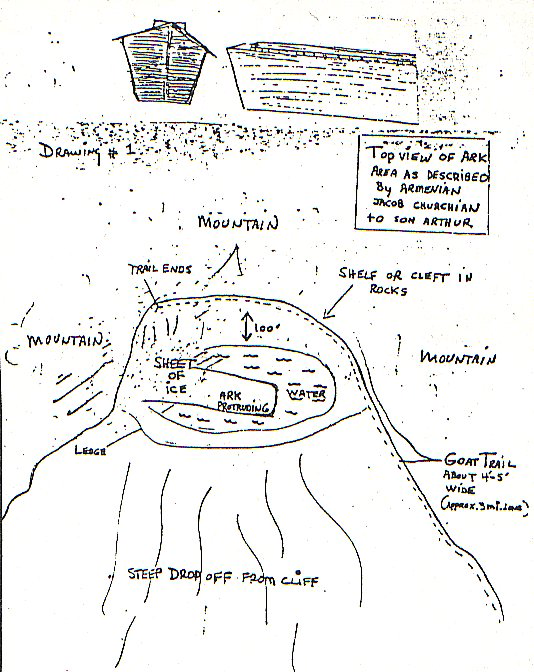 Drawing # 1
Top view of Ark
Area as described
By Armenian
Jacob Chuachian
to son Arthur
Mountain
Trail Ends
Shelf or cleft in
rocks
100'
Mountain
Mountain
Sheet
of
Ice
Ark
Protruding
Water
Ledge
Goat Trail
About 4'-5'
wide
(Approx. 3 mi. long)
Steep Drop off from cliff